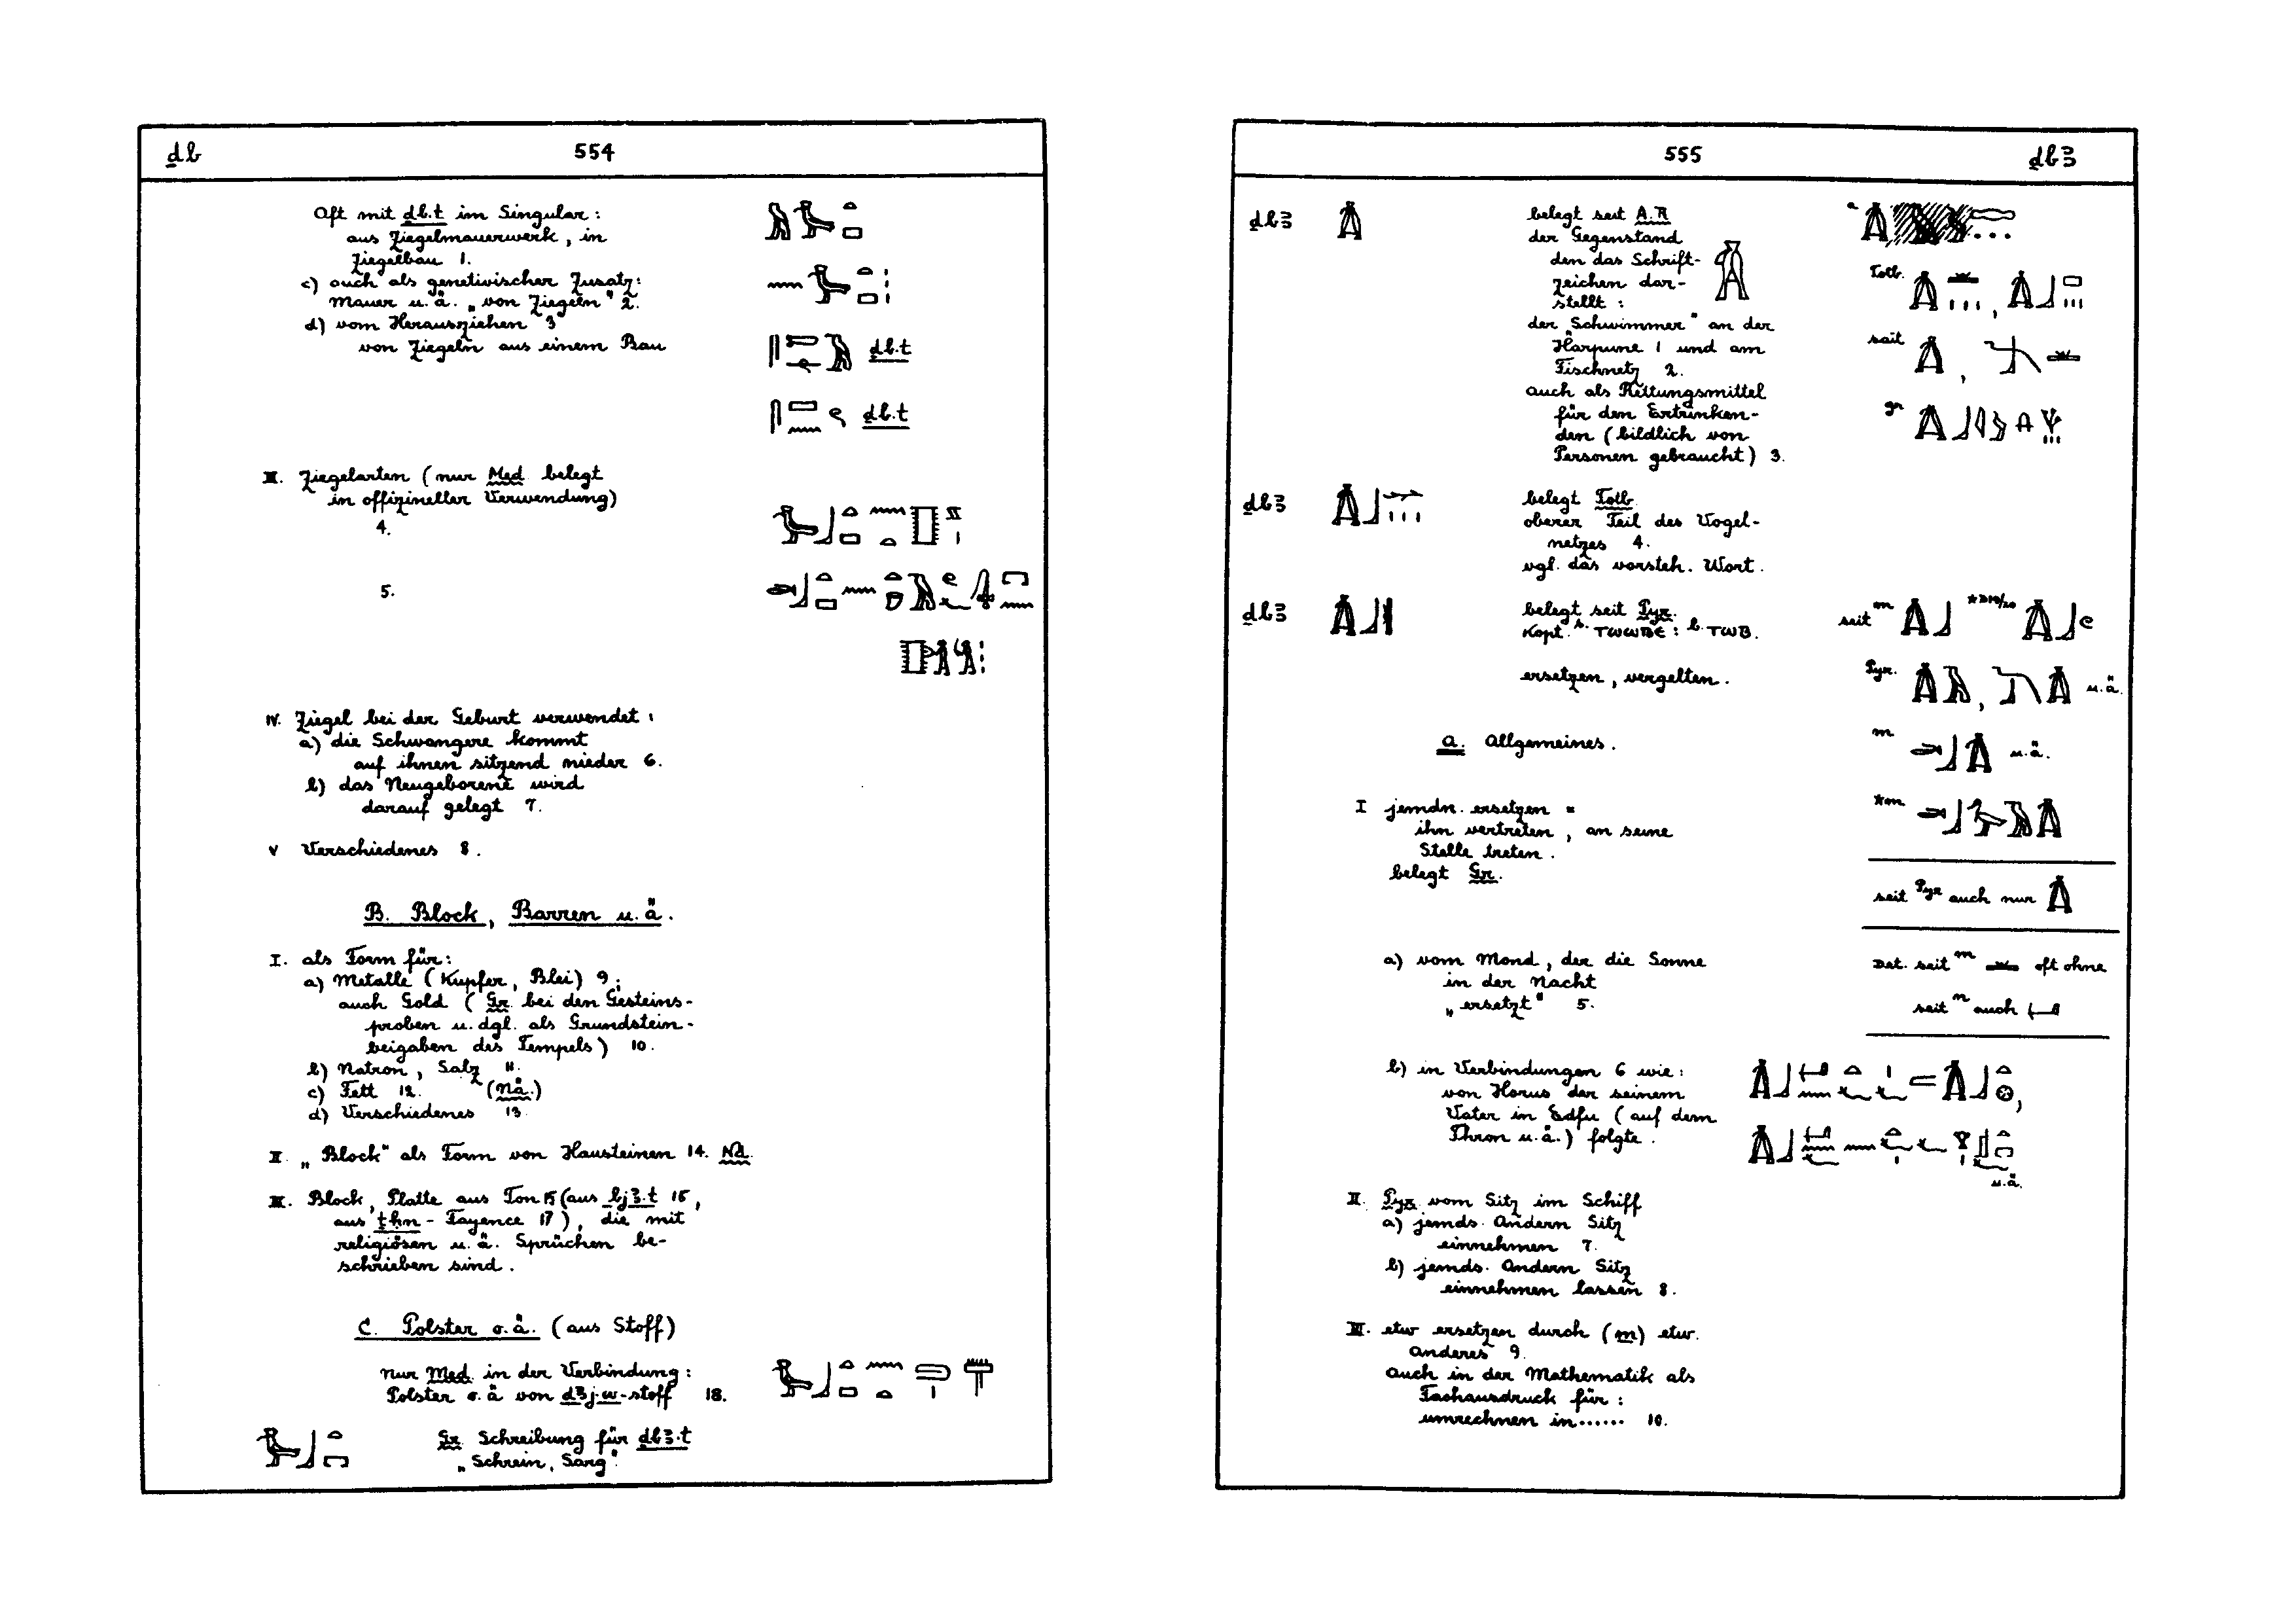 ḏb 554
Oft mit ḏb.t im Singular:
aus Ziegelmauerwerk, in
Ziegelbau 1.
c) auch als genetivischer Zusatz:
Mauer u.ä. „von Ziegeln" 2.
d) vom Herausziehen 3
von Ziegeln aus einem Bau
ḏb.t
ḏb.t
III. Ziegelarten (nur Med. belegt
in offizineller Verwendung)
4.
5.
IV. Ziegel bei der Geburt verwendet:
a) die Schwangere kommt
auf ihnen sitzend nieder 6.
b) das Neugeborene wird
darauf gelegt 7.
V Verschiedenes 8.
B. Block, Barren u.ä.
I. als Form für:
a) Metalle (Kupfer, Blei) 9;
auch Gold (Gr. bei den Gesteins-
proben u. dgl. als Grundstein-
beigaben des Tempels) 10.
b) Natron, Salz 11.
c) Fett 12. (Nä.)
d) Verschiedenes 13.
II „Block" als Form von Hausteinen 14. Nä.
III. Block, Platte aus Ton 15 (aus bjꜣ.t 16,
aus ṯḥn-Fayence 17), die mit
religiösen u.ä. Sprüchen be-
schrieben sind.
C. Polster o.ä. (aus Stoff)
nur Med. in der Verbindung:
Polster o.ä. von dꜣj.w-stoff 18.
Gr. Schreibung für ḏbꜣ.t
„Schrein, Sarg".
555 ḏbꜣ
ḏbꜣ belegt seit A.R.
der Gegenstand
den das Schrift-
zeichen dar-
stellt:
der „Schwimmer" an der
Harpune 1 und am
Fischnetz 2.
auch als Rettungsmittel
für den Ertrinken-
den (bildlich von
Personen gebraucht) 3.
a
Totb.
sait
gr
ḏbꜣ belegt Totb.
oberer Teil des Vogel-
netzes 4.
vgl. das vorsteh. Wort.
ḏbꜣ belegt seit Pyr.
Kopt. s. ⲧⲱⲱⲃⲉ : b. ⲧⲱⲃ.
ersetzen, vergelten.
seit m *D19/20
Pyr. u.ä.
m u.ä.
*m
seit Pyr auch nur
Det. seit m oft ohne
seit n auch
a. Allgemeines.
I jemdn. ersetzen =
ihn vertreten, an seine
Stelle treten.
belegt Gr.
a) vom Mond, der die Sonne
in der Nacht
„ersetzt" 5.
b) in Verbindungen 6 wie:
von Horus der seinem
Vater in Edfu (auf dem
Thron u.ä.) folgte.
u.ä.
II. Pyr. vom Sitz im Schiff
a) jemds. Andern Sitz
einnehmen 7.
b) jemds. Andern Sitz
einnehmen lassen 8.
III. etw ersetzen durch (m) etw.
anderes 9.
auch in der Mathematik als
Fachausdruck für:
umrechnen in...... 10.